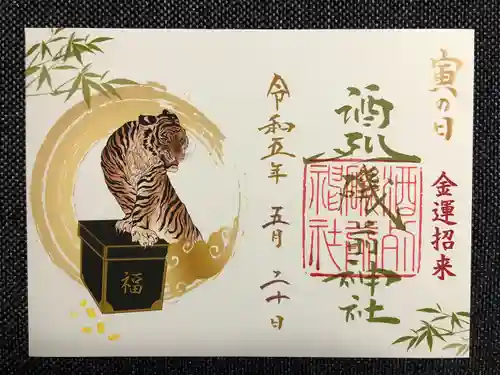 寅の日
金運招来
酒列磯前神社
酒列
磯前
神社
令和五年 五月 二十日
福